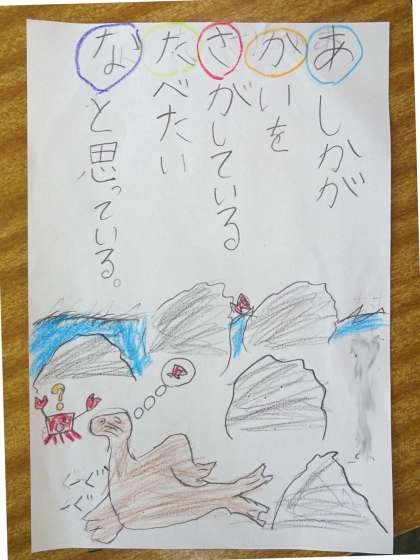 あしかが
かいを
さがしている
たべたい
なと思っている。
?
ぐーぐー